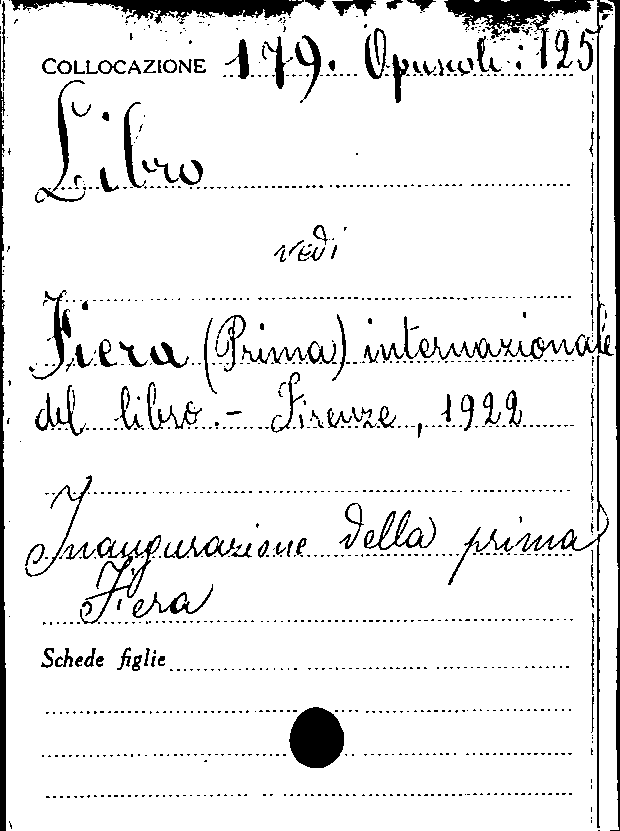 COLLOCAZIONE 179. Opuscoli: 125
Libro
vedi
Fiera (Prima) internazionale
del libro. - Firenze, 1922
Inaugurazione della prima
Fiera
Schede figlie